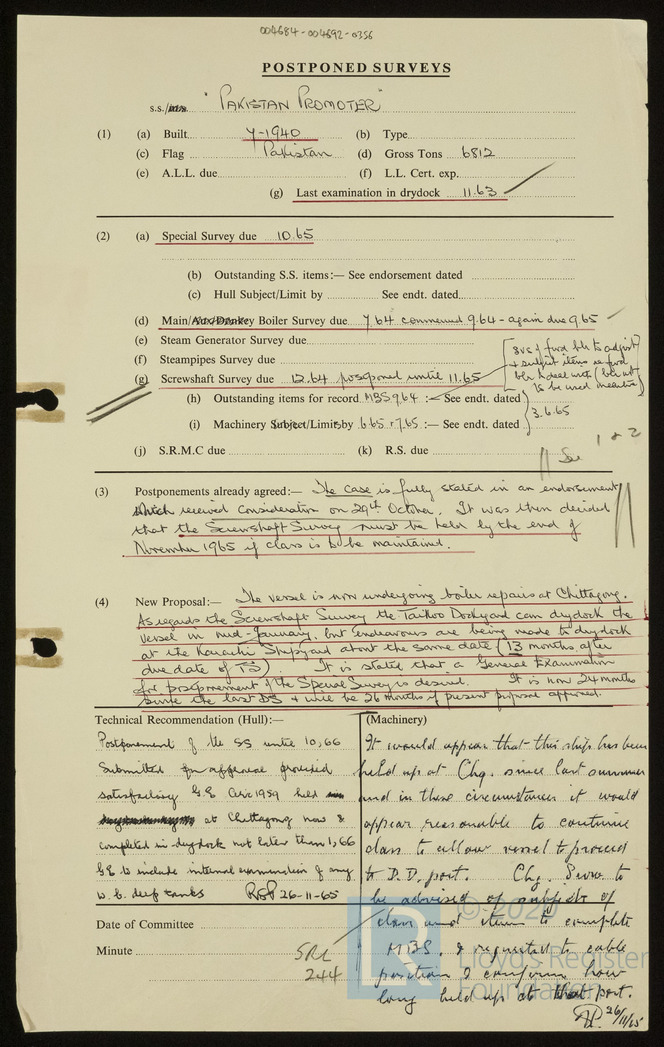 004684-004692-0356
POSTPONED SURVEYS
s.s./m.s. "PAKISTAN PROMOTER"
(1) (a) Built 7-1940 (b) Type
(c) Flag Pakistan (d) Gross Tons 6812
(e) A.L.L. due (f) L.L. Cert. exp.
(g) Last examination in drydock 11.63
(2) (a) Special Survey due 10.65
(b) Outstanding S.S. items:— See endorsement dated
(c) Hull Subject/Limit by See endt. dated
(d) Main/Aux/Donkey Boiler Survey due 7.64 commenced 9.64 - again due 9.65
(e) Steam Generator Survey due
(f) Steampipes Survey due
(g) Screwshaft Survey due 12.64 postponed until 11.65
8vs & furd blr to adjust
& subject items re furd
blr dealt with (blr not
to be used meantime)
(h) Outstanding items for record MBS 9.64 :— See endt. dated
(i) Machinery Subject/Limit by 6.65 & 7.65 :— See endt. dated
3.6.65
(j) S.R.M.C due (k) R.S. due
See 1 & 2
(3) Postponements already agreed:— The case is fully stated in an endorsement
which received consideration on 29th October. It was then decided
that the Screwshaft Survey must be held by the end of
November 1965 if class is to be maintained.
(4) New Proposal:— The vessel is now undergoing boiler repairs at Chittagong.
As regards the Screwshaft Survey the Taikoo Dockyard can drydock the
vessel in mid-January, but endeavours are being made to drydock
at the Karachi Shipyard about the same date (13 months after
due date of TS). It is stated that a General Examination
for postponement of the Special Survey is desired. It is now 24 months
since the last DS & will be 26 months if present proposal approved.
Technical Recommendation (Hull):—
Postponement of the SS until 10,66
Submitted for approval provided
satisfactory G.E. Circ 1959 held
at Chittagong now &
completed in drydock not later than 1,66
G.E. to include internal examination of any
w.b. deep tanks RSP 26-11-65
(Machinery)
It would appear that this ship has been
held up at Chg. since last summer
and in these circumstances it would
appear reasonable to continue
class to allow vessel to proceed
to D.D. port. Chg. Survs to
be advised of subjects of
class and items to complete
MBS, & requested to cable
position & confirm how
long held up at that port.
26/11/65
Date of Committee
Minute
SRL
244
© 2020
LR
Lloyd's Register
Foundation